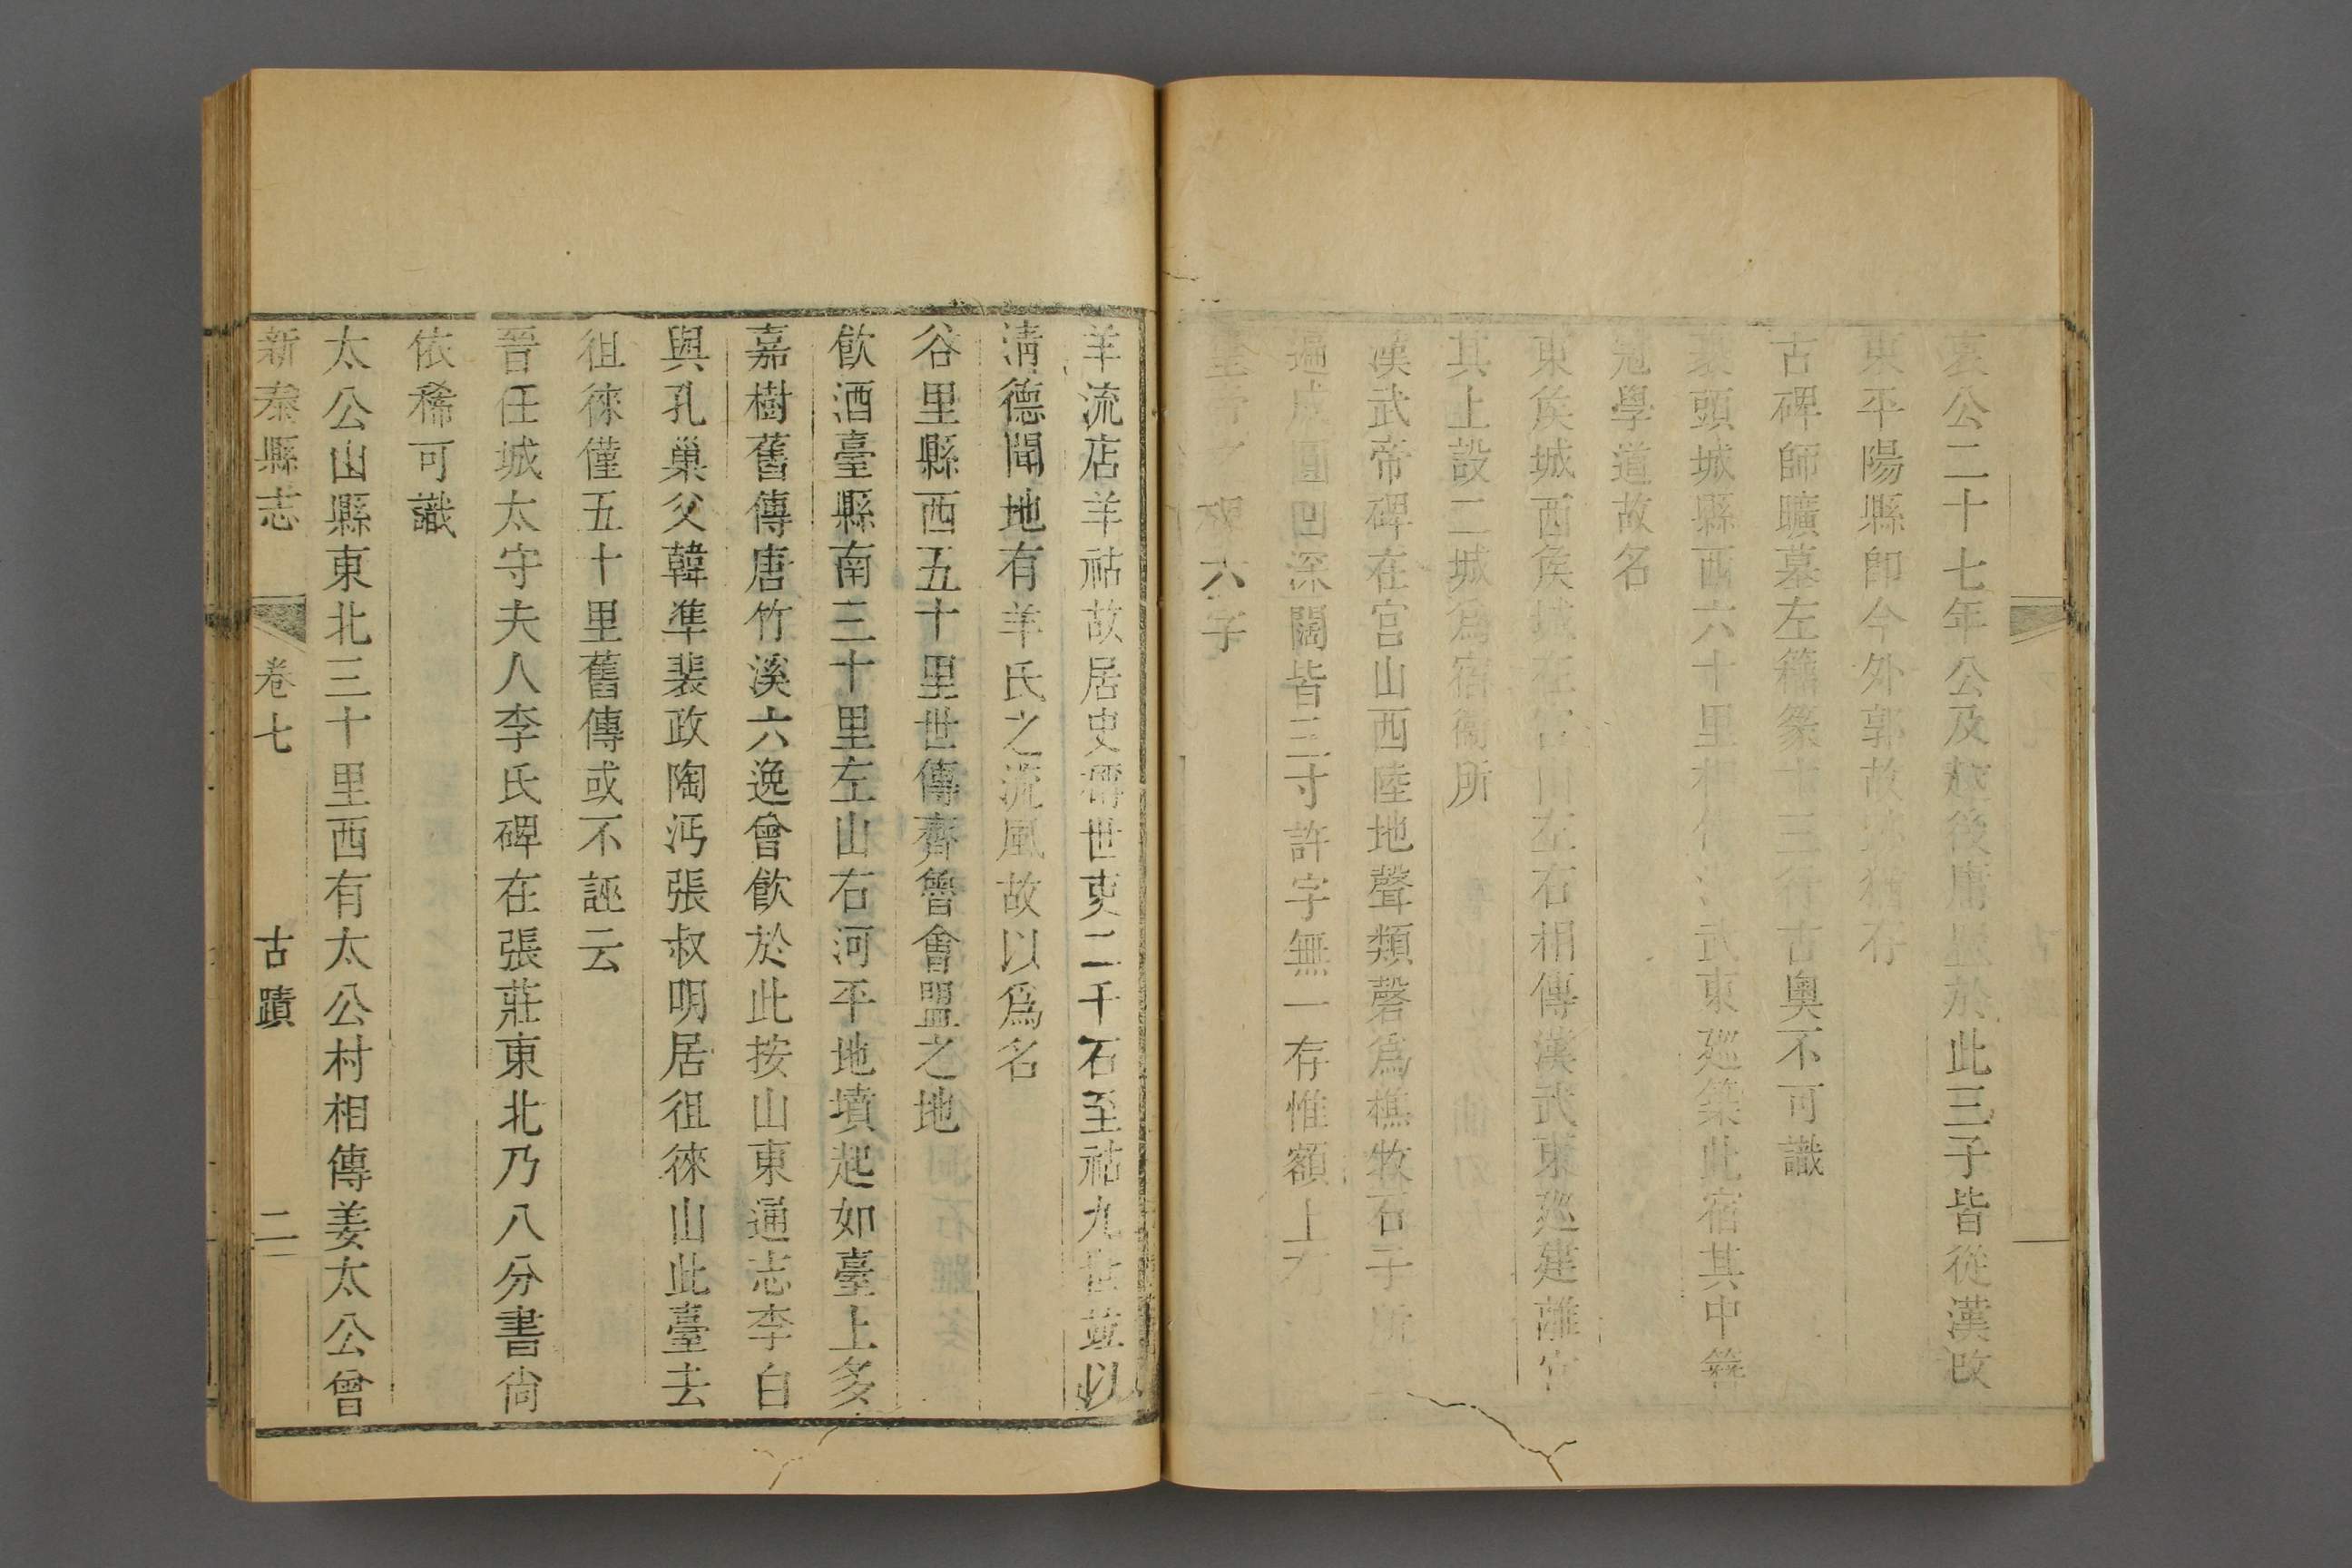 哀公二十七年公及越後庸盟於此三子皆從漢改
東平陽縣即今外郭故城猶存
古碑師曠墓左籀篆十三行古奥不可識
頭城縣西六十里相傳漢武東廵築此宿其中簪
冠學道故名
東矦城西矦城在宫山左右相傳漢武東廵建離宫
其上設二城爲宿衞所
漢武帝碑在宫山西陸地聲類磬爲樵牧石子所
遍成圓凹深闊皆三寸許字無一存惟額上有
六字
羊流店羊祜故居史稱世吏二千石至祜九世並以
清德聞地有羊氏之流風故以爲名
谷里縣西五十里世傳齊魯會盟之地
飲酒臺縣南三十里左山右河平地墳起如臺上多
嘉樹舊傳唐竹溪六逸曾飲於此按山東通志李白
與孔巢父韓凖裴政陶沔張叔明居徂徠山此臺去
徂徠僅五十里舊傳或不誣云
晉任城太守夫人李氏碑在張莊東北乃八分書尙
依稀可識
太公山縣東北三十里西有太公村相傳姜太公曾
新泰縣志 卷七 古蹟 二